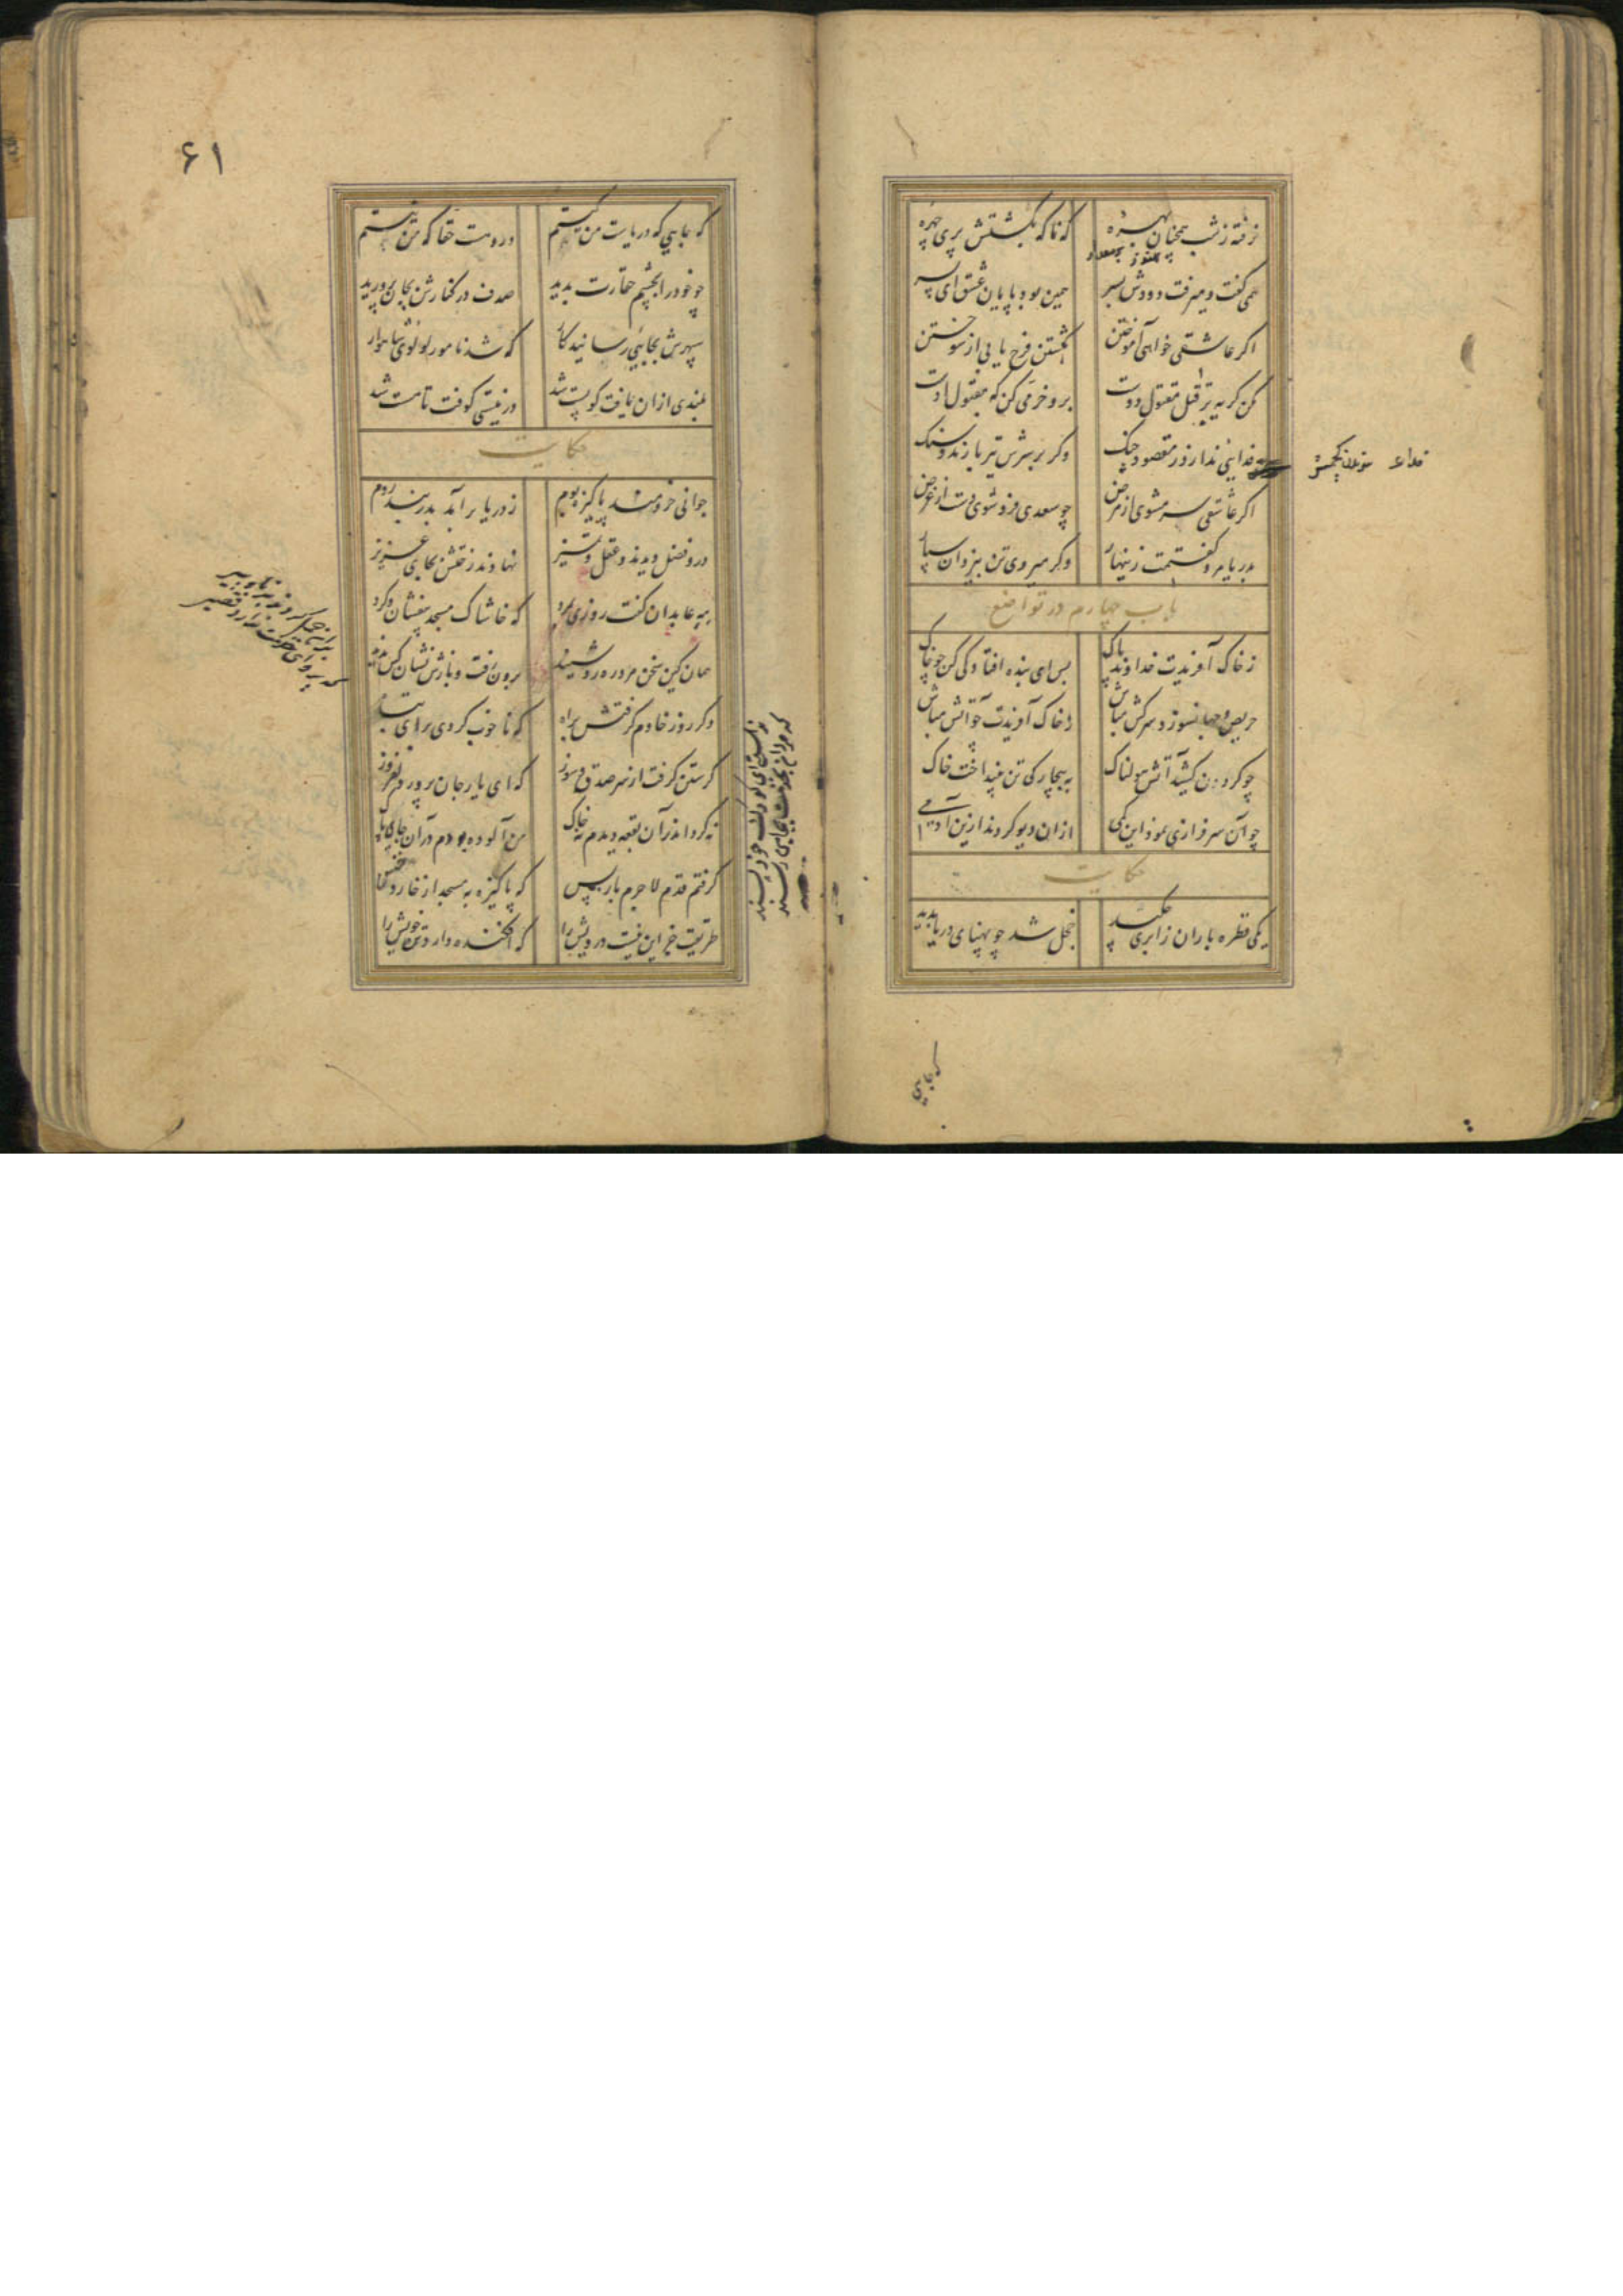 نرفته ز شب همچنان بهره که ناکه بکشتش پری چهره
همی کفت و میرفت دودش بسر همین بود پایان عشق ای پسر
اکر عاشقی خواهی آموختن بکشتن فرج یابی از سوختن
مکن کریه بر قتل مقتول دوست برو خرمی کن که مقبول اوست
فدایی ندارد ز مقصود چنک وکر بر سرش تیر بارند و سنک
اکر عاشقی سر مشوی از مرض چو سعدی فرو شوی دست از غرض
بدریا مرو کفتمت زینهار وکر میروی تن بیزدان سپار
باب چهارم در تواضع
ز خاک آفریدت خداوند پاک پس ای بنده افتادکی کن چو خاک
حریص و جهانسوز و سرکش مباش ز خاک آفریدت چو آتش مباش
چو کردن کشید آتش هولناک به بیچارکی تن بینداخت خاک
چو آن سرفرازی نمود این کمی ازان دیو کردند ازین آدمی
حکایت
یکی قطره باران ز ابری چکید خجل شد چو پهنای دریا بدید
که جایی
۶۱
که جایی که دریاست من کیستم در اوست حقا که من نیستم
چو خود را بچشم حقارت بدید صدف در کنارش بجان پرورید
سپهرش بجایی رسانید کار که شد نامور لولوی شاهوار
بلندی ازان یافت کو پست شد در نیستی کوفت تا هست شد
حکایت
جوانی خردمند پاکیزه بوم ز دریا برآمد بدربند روم
درو فضل دیدند و عقل و تمیز نهادند رختش بجای عزیز
مه عابدان کفت روزی بمرد که خاشاک مسجد بیفشان و کرد
همان کین سخن مرد ره رو شنید برون رفت و بازش نشان کس ندید
دکر روز خادم کرفتش براه که ناخوب کردی برای تباه
کرستن کرفت از سر صدق و سوز که ای یار جان پرور دلفروز
نه کرد اندر آن بقعه دیدم نه خاک من آلوده بودم در آن جای پاک
کرفتم قدم لاجرم باز پس که پاکیزه به مسجد از خار و خس
طریقت جز این نیست درویش را که افکنده دارد تن خویش را
ندانستی ای کودک خود پسند
که مردان ز خدمت بجایی رسند